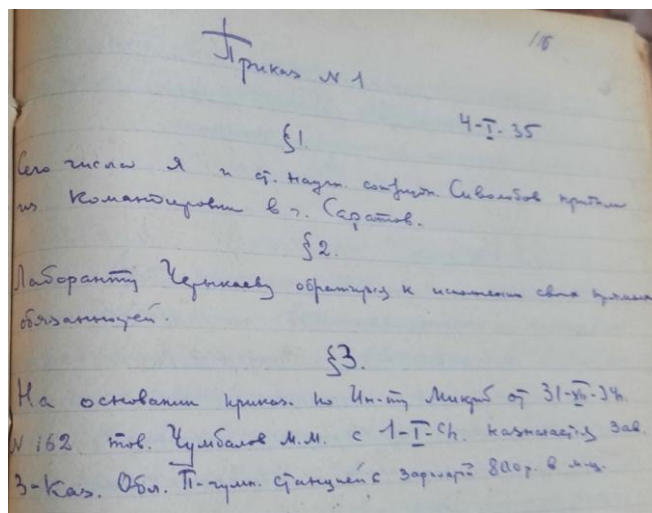 116
Приказ N 1
4-I-35
§1.
Сего числа я и ст. научн. сотрудн. прибыли
из командировки в г. Саратов.
§2.
Лаборанту обратиться к исполнению своих прямых
обязанностей.
§3.
На основании приказ. по Ин-ту Микроб от 31-XII-34г.
N 162 тов. Чумбалов М.М. с 1-I-с/г. назначается зав.
3-Каз. Обл. П-чумн. станцией с зарплатой 800р. в м-ц.